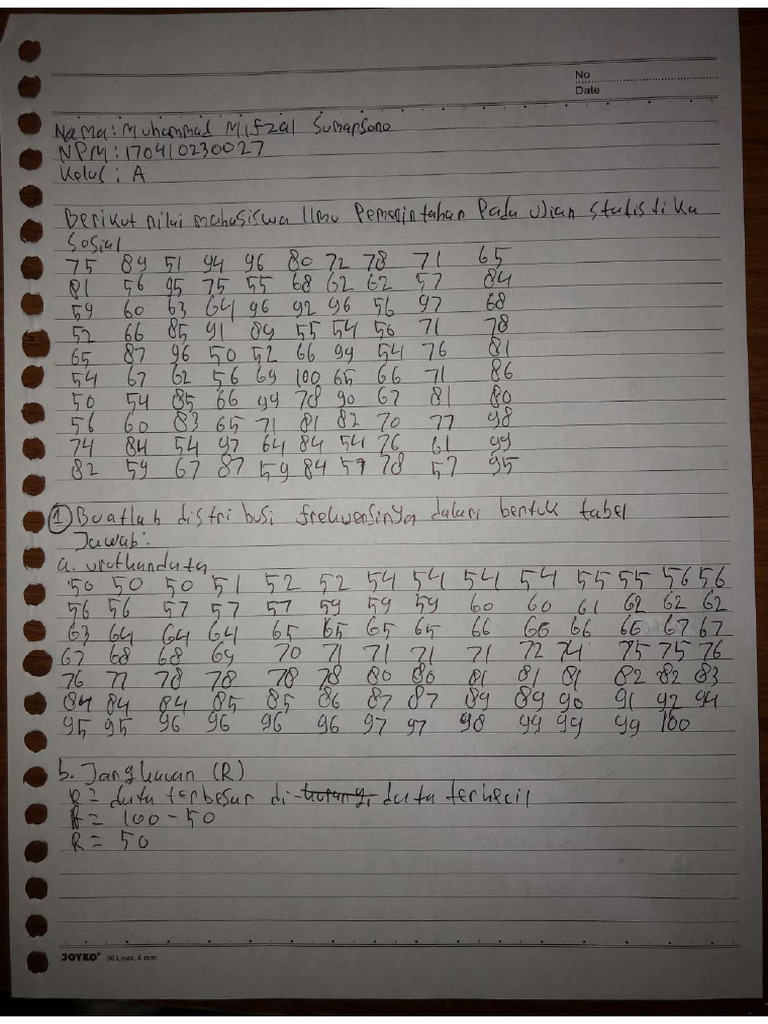 No
Date
Nama: Muhammad Mifzal Sumarsono
NPM: 170410230027
Kelas: A
Berikut nilai mahasiswa Ilmu Pemerintahan Pada Ujian Statistika
Sosial
75 89 51 94 96 80 72 78 71 65
81 56 95 75 55 68 62 62 57 84
59 60 63 64 96 92 96 56 97 68
52 66 85 91 89 55 54 56 71 78
65 87 96 50 52 66 99 54 76 81
54 67 62 56 69 100 65 66 71 86
50 54 85 66 99 78 90 67 81 80
56 60 83 65 71 81 82 70 77 98
74 84 54 97 64 84 54 76 61 99
82 59 67 87 59 84 57 78 57 95
① Buatlah distribusi frekuensinya dalam bentuk tabel
Jawab:
a. urutkan data
50 50 50 51 52 52 54 54 54 54 55 55 56 56
56 56 57 57 57 59 59 59 60 60 61 62 62 62
63 64 64 64 65 65 65 65 66 66 66 66 67 67
67 68 68 69 70 71 71 71 71 72 74 75 75 76
76 77 78 78 78 78 80 80 81 81 81 82 82 83
84 84 84 85 85 86 87 87 89 89 90 91 92 94
95 95 96 96 96 96 97 97 98 99 99 99 100
b. Jangkauan (R)
R = data terbesar di-kurangi data terkecil
R = 100 - 50
R = 50
JOYKO® 36 Lines, 6 mm